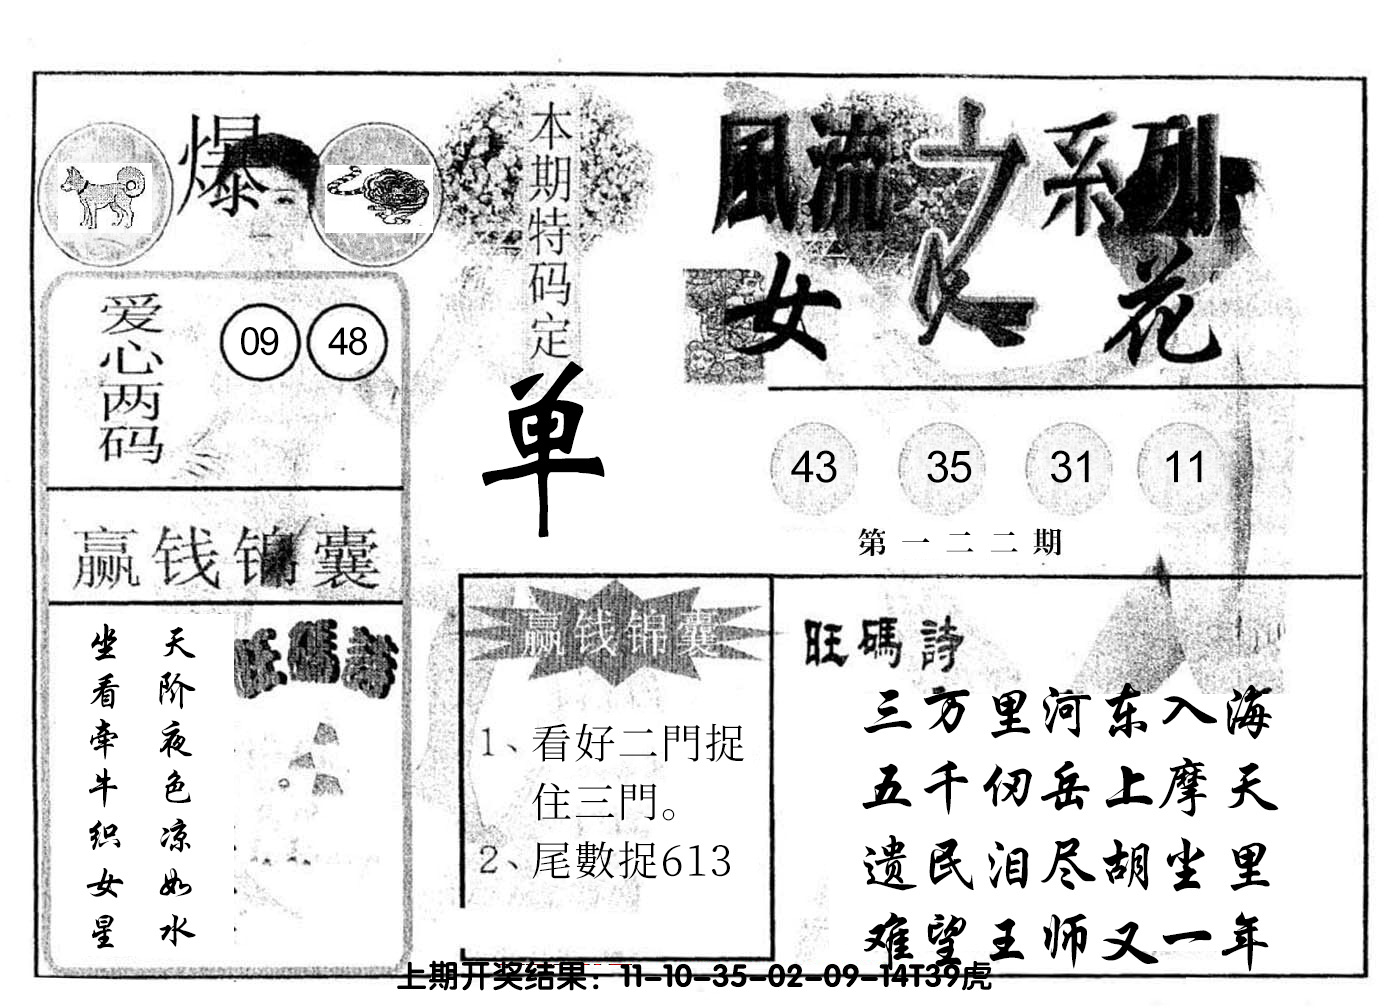 爆
本期特码定
单
風流之系列
女人花
爱心两码
09 48
43 35 31 11
第一二二期
赢钱锦囊
旺碼詩
天阶夜色凉如水
坐看牵牛织女星
赢钱锦囊
1、看好二門捉
住三門。
2、尾數捉613
旺碼詩
三万里河东入海
五千仞岳上摩天
遗民泪尽胡尘里
难望王师又一年
上期开奖结果：11-10-35-02-09-14T39虎